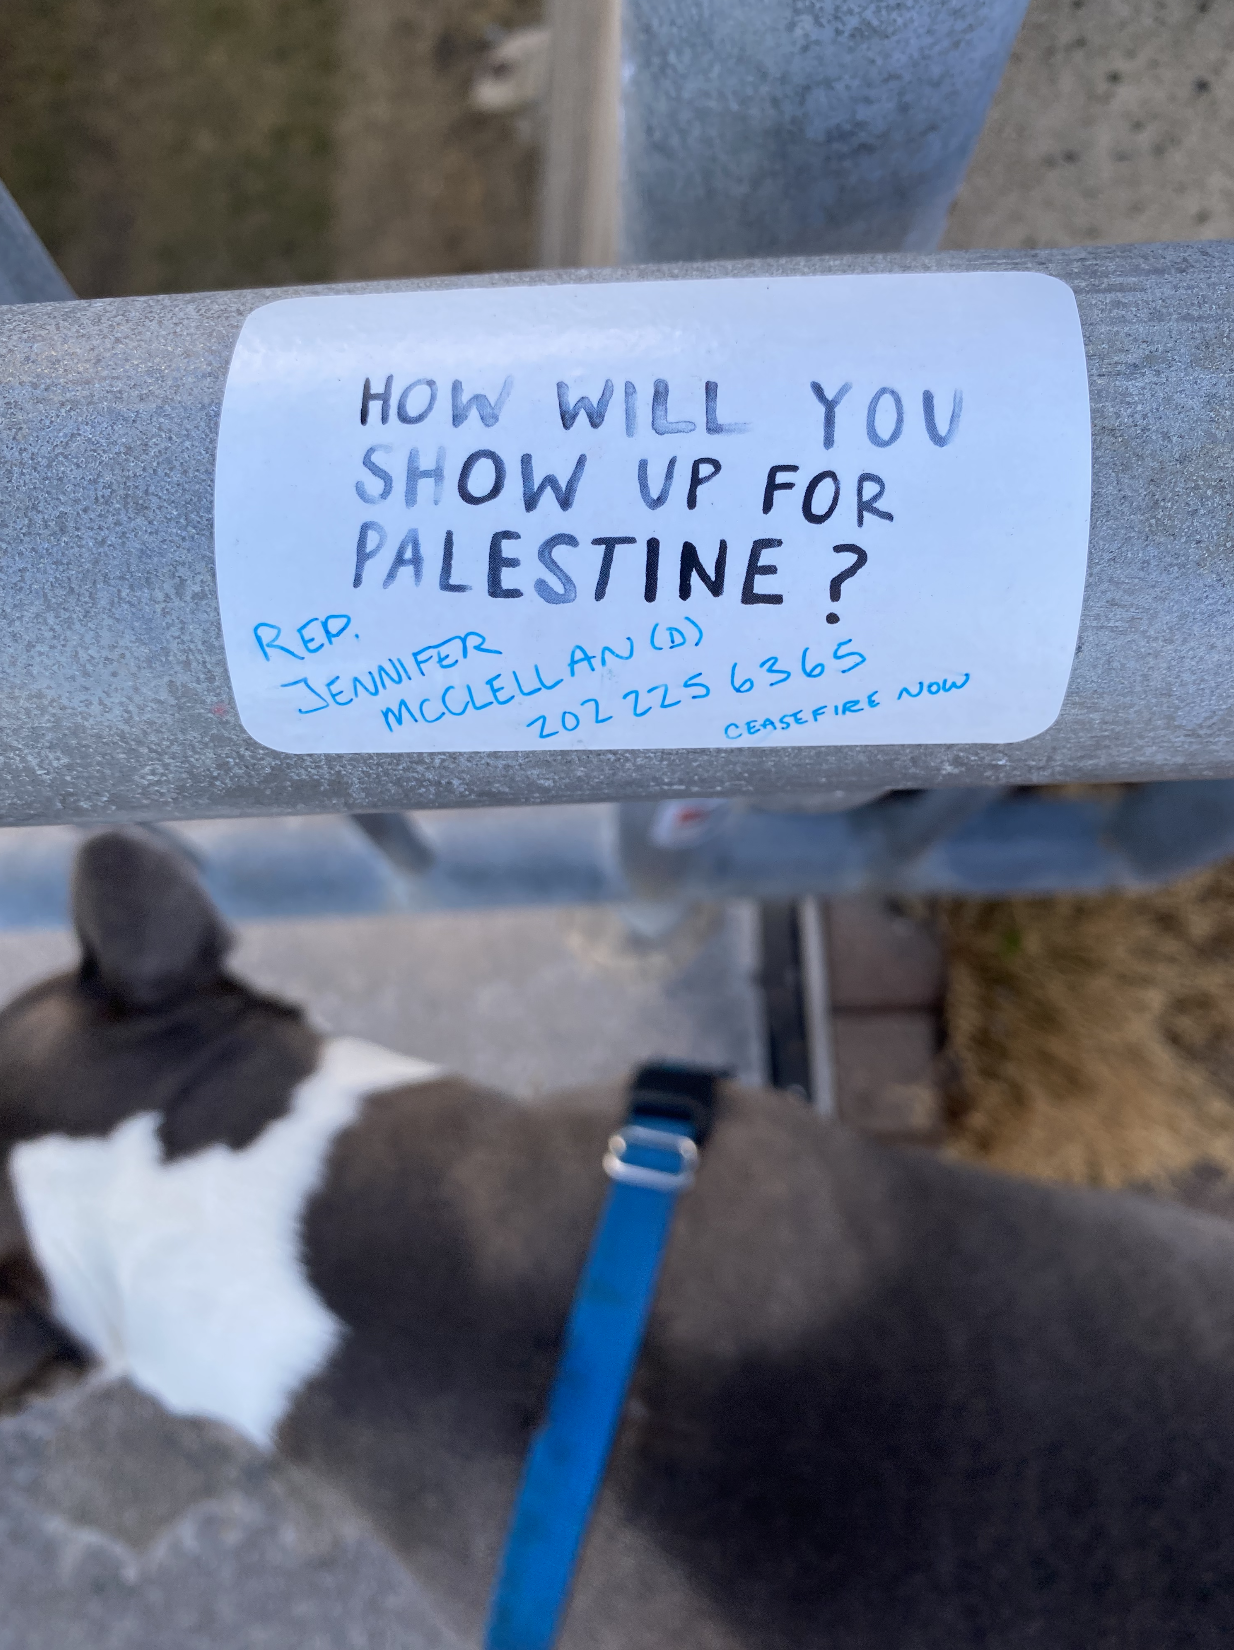 HOW WILL YOU
SHOW UP FOR
PALESTINE?
REP.
JENNIFER
MCCLELLAN (D)
202 225 6365
CEASEFIRE NOW